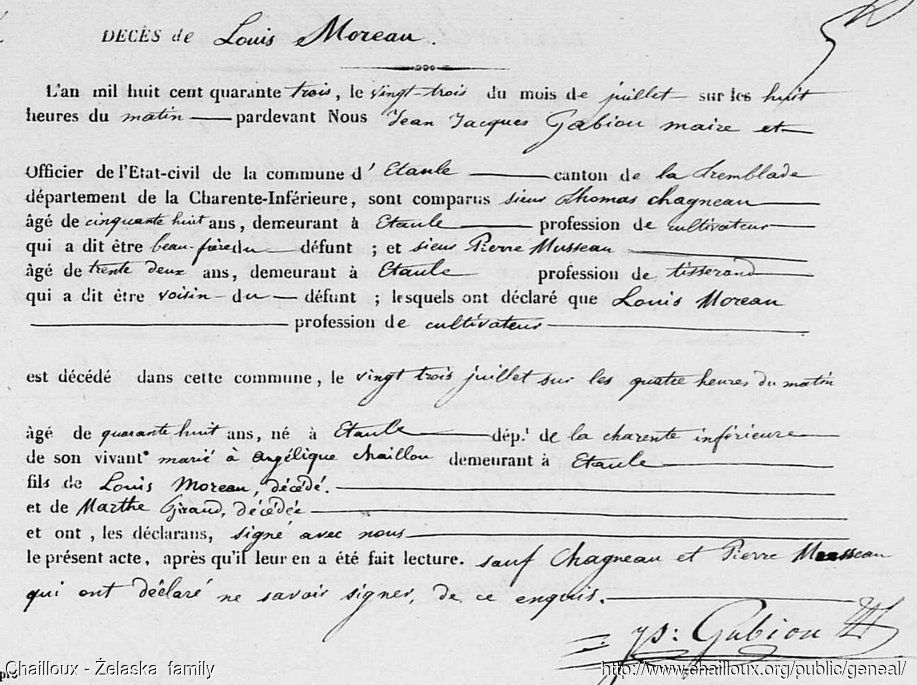 DECÈS de Louis Moreau.
L'an mil huit cent quarante trois, le vingt-trois du mois de juillet sur les huit
heures du matin pardevant Nous Jean Jacques Gabiou maire et
Officier de l'Etat-civil de la commune d' Etaule canton de la tremblade
département de la Charente-Inférieure, sont comparus sieur Thomas chagneau
âgé de cinquante huit ans, demeurant à Etaule profession de cultivateur
qui a dit être beau-frère du défunt ; et sieur Pierre Musseau
âgé de trente deux ans, demeurant à Etaule profession de tisserand
qui a dit être voisin du défunt ; lesquels ont déclaré que Louis Moreau
profession de cultivateur
est décédé dans cette commune, le vingt trois juillet sur les quatre heures du matin
âgé de quarante huit ans, né à Etaule dép.t de la charente inférieure
de son vivant marié à angélique chaillou demeurant à Etaule
fils de Louis Moreau, décédé.
et de Marthe Giraud, décédée
et ont, les déclarans, signé avec nous
le présent acte, après qu'il leur en a été fait lecture. sauf Chagneau et Pierre Musseau
qui ont déclaré ne savoir signer, de ce enquis.
Gabiou
Chailloux - Żelaska family
http://www.chailloux.org/public/geneal/